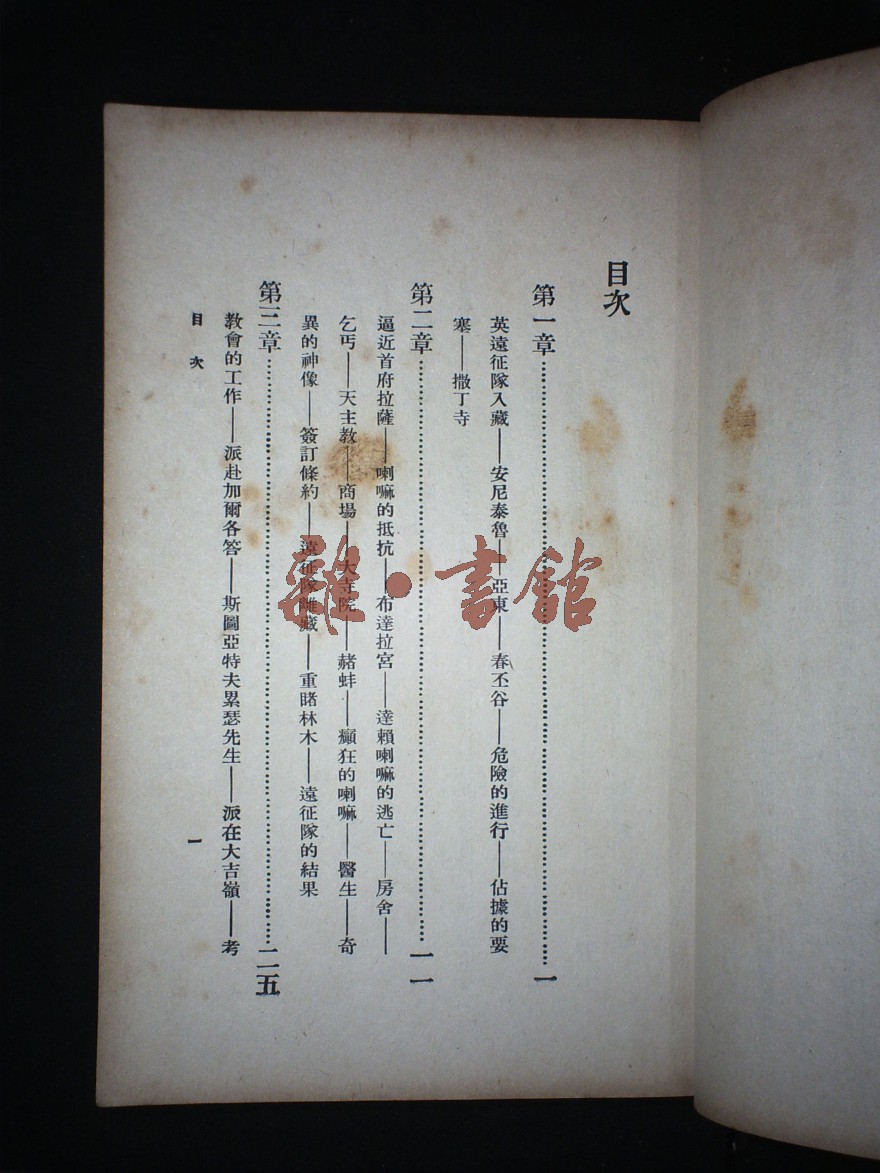 目次
第一章……………………一
英遠征隊入藏——安尼泰魯——亞東——春丕谷——危險的進行——佔據的要
塞——撒丁寺
第二章……………………一一
逼近首府拉薩——喇嘛的抵抗——布達拉宮——達賴喇嘛的逃亡——房舍——
乞丐——天主教——商場——大寺院——赭蚌——癲狂的喇嘛——醫生——奇
異的神像——簽訂條約——遠征隊離藏——重睹林木——遠征隊的結果
第三章……………………二五
教會的工作——派赴加爾各答——斯圖亞特夫累瑟先生——派在大吉嶺——考
目次
一
雜·書館